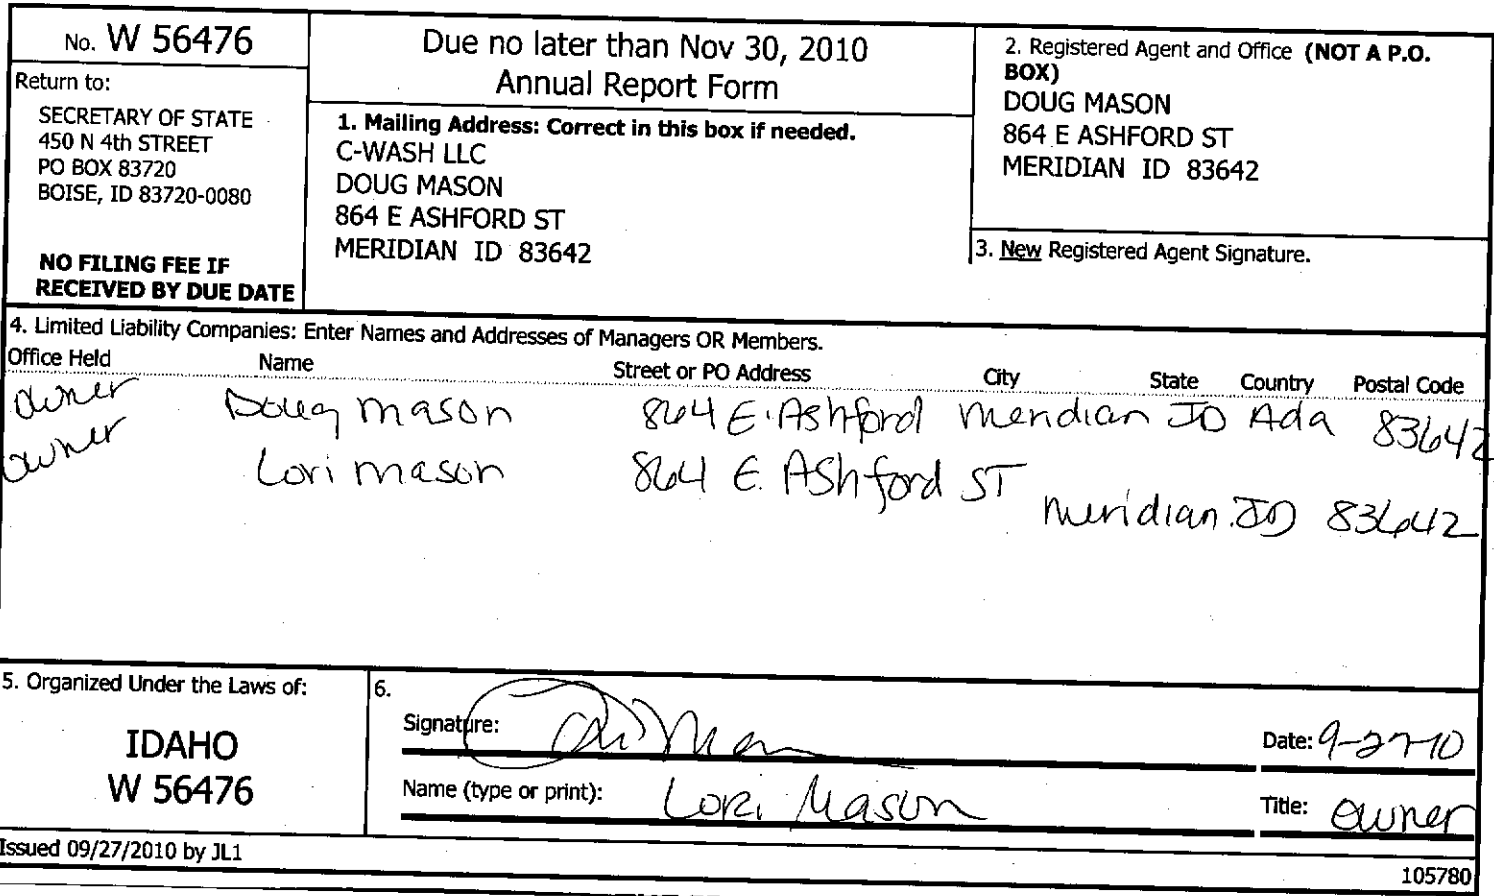 No. W 56476
Return to:
SECRETARY OF STATE
450 N 4th STREET
PO BOX 83720
BOISE, ID 83720-0080
NO FILING FEE IF
RECEIVED BY DUE DATE
Due no later than Nov 30, 2010
Annual Report Form
1. Mailing Address: Correct in this box if needed.
C-WASH LLC
DOUG MASON
864 E ASHFORD ST
MERIDIAN ID 83642
2. Registered Agent and Office (NOT A P.O.
BOX)
DOUG MASON
864 E ASHFORD ST
MERIDIAN ID 83642
3. New Registered Agent Signature.
4. Limited Liability Companies: Enter Names and Addresses of Managers OR Members.
Office Held Name Street or PO Address City State Country Postal Code
owner Doug Mason 864 E. Ashford Meridian ID Ada 83642
owner Lori Mason 864 E. Ashford ST
Meridian ID 83642
5. Organized Under the Laws of:
IDAHO
W 56476
6.
Signature: Date: 9-27-10
Name (type or print): Lori Mason Title: owner
Issued 09/27/2010 by JL1
105780